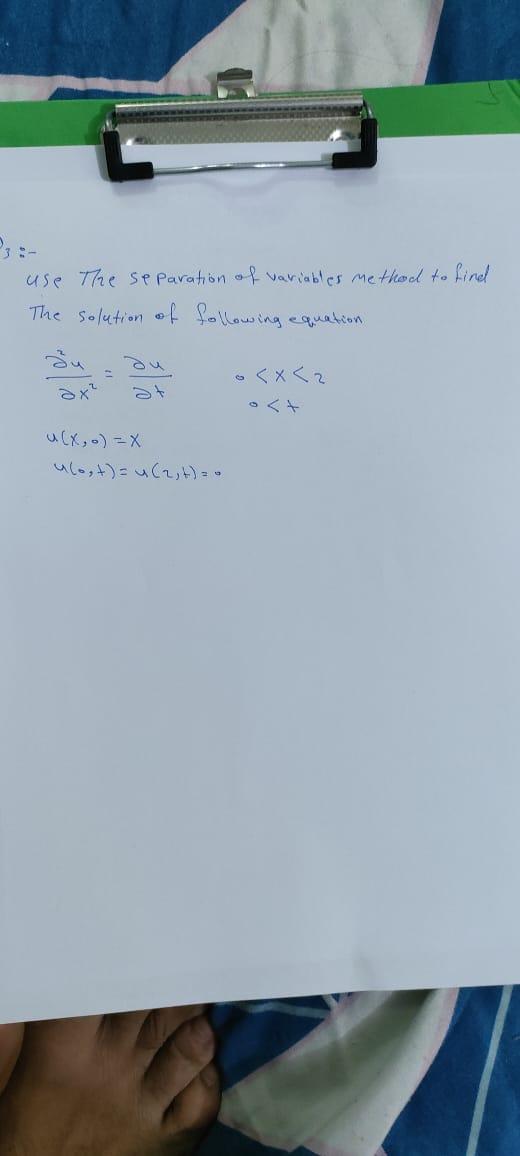 3:-
use The separation of variables method to find
The solution of following equation
∂²u/∂x² = ∂u/∂t    0<x<2
0<t
u(x,0)=x
u(0,t)=u(2,t)=0